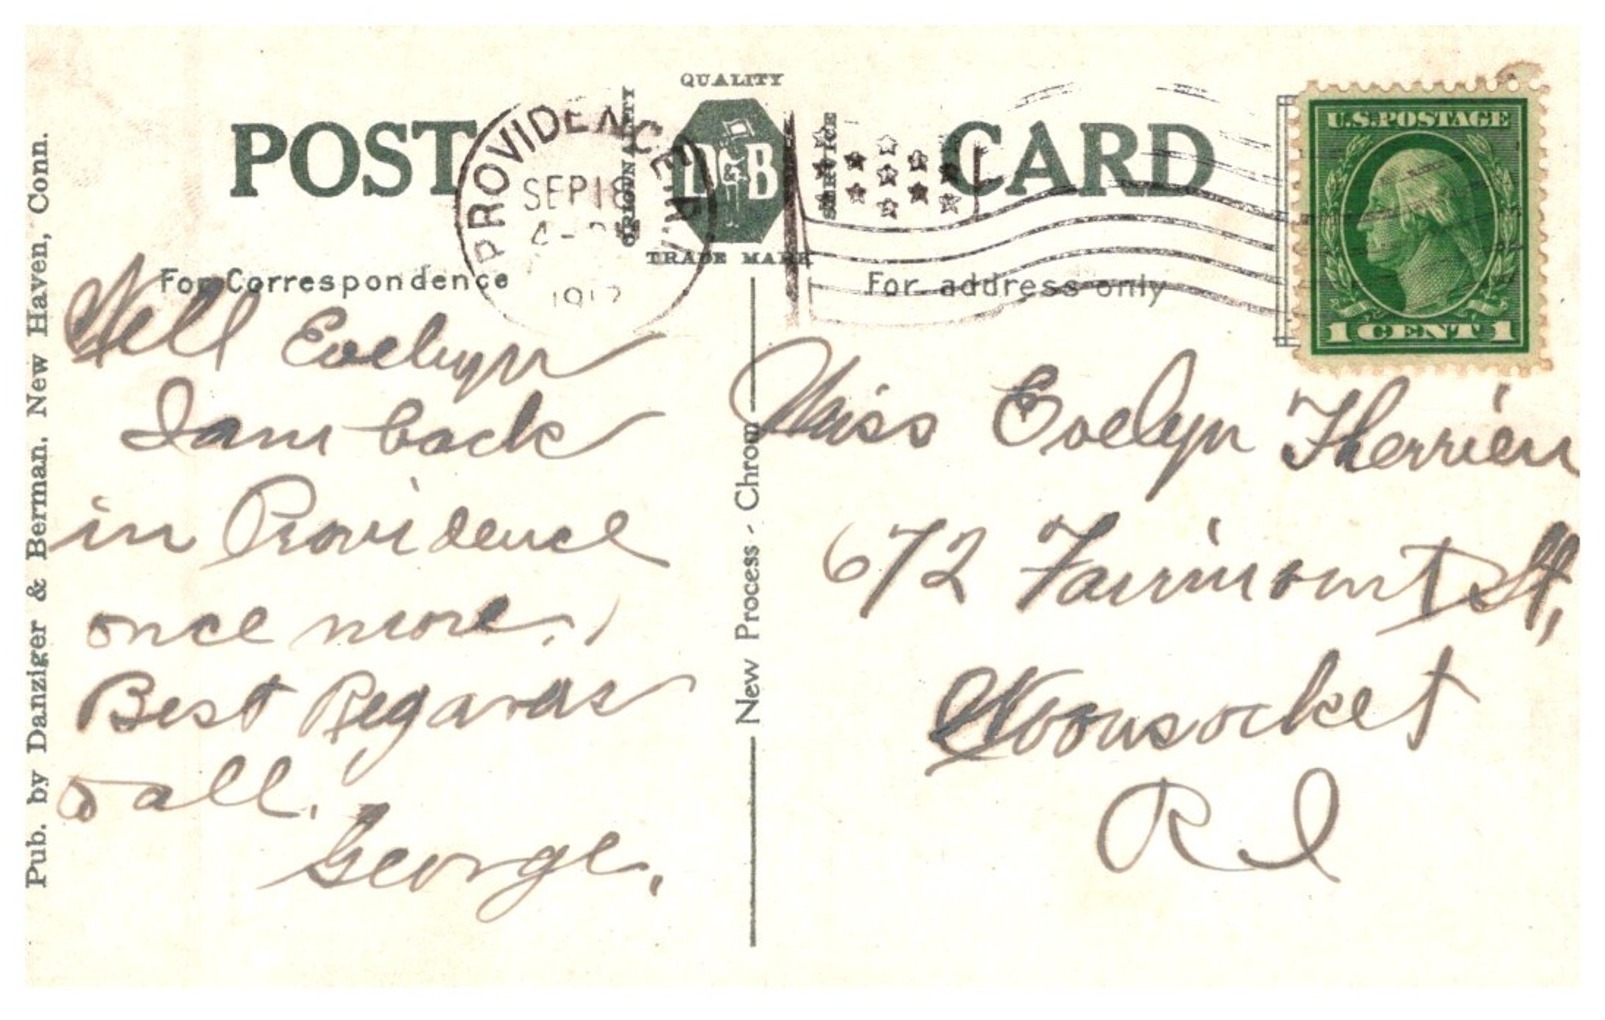 QUALITY
ORIGINALITY
SERVICE
D & B
TRADE MARK
POST CARD
PROVIDENCE, R.I.
SEP 18
4-PM
U.S. POSTAGE
1 CENT 1
For Correspondence
For address only
Well Evelyn
I am back
in Providence
once more.
Best Regards
to all.
George.
Miss Evelyn Therrien
672 Fairmount St,
Woonsocket
R I
New Process - Chrom
Pub. by Danziger & Berman, New Haven, Conn.